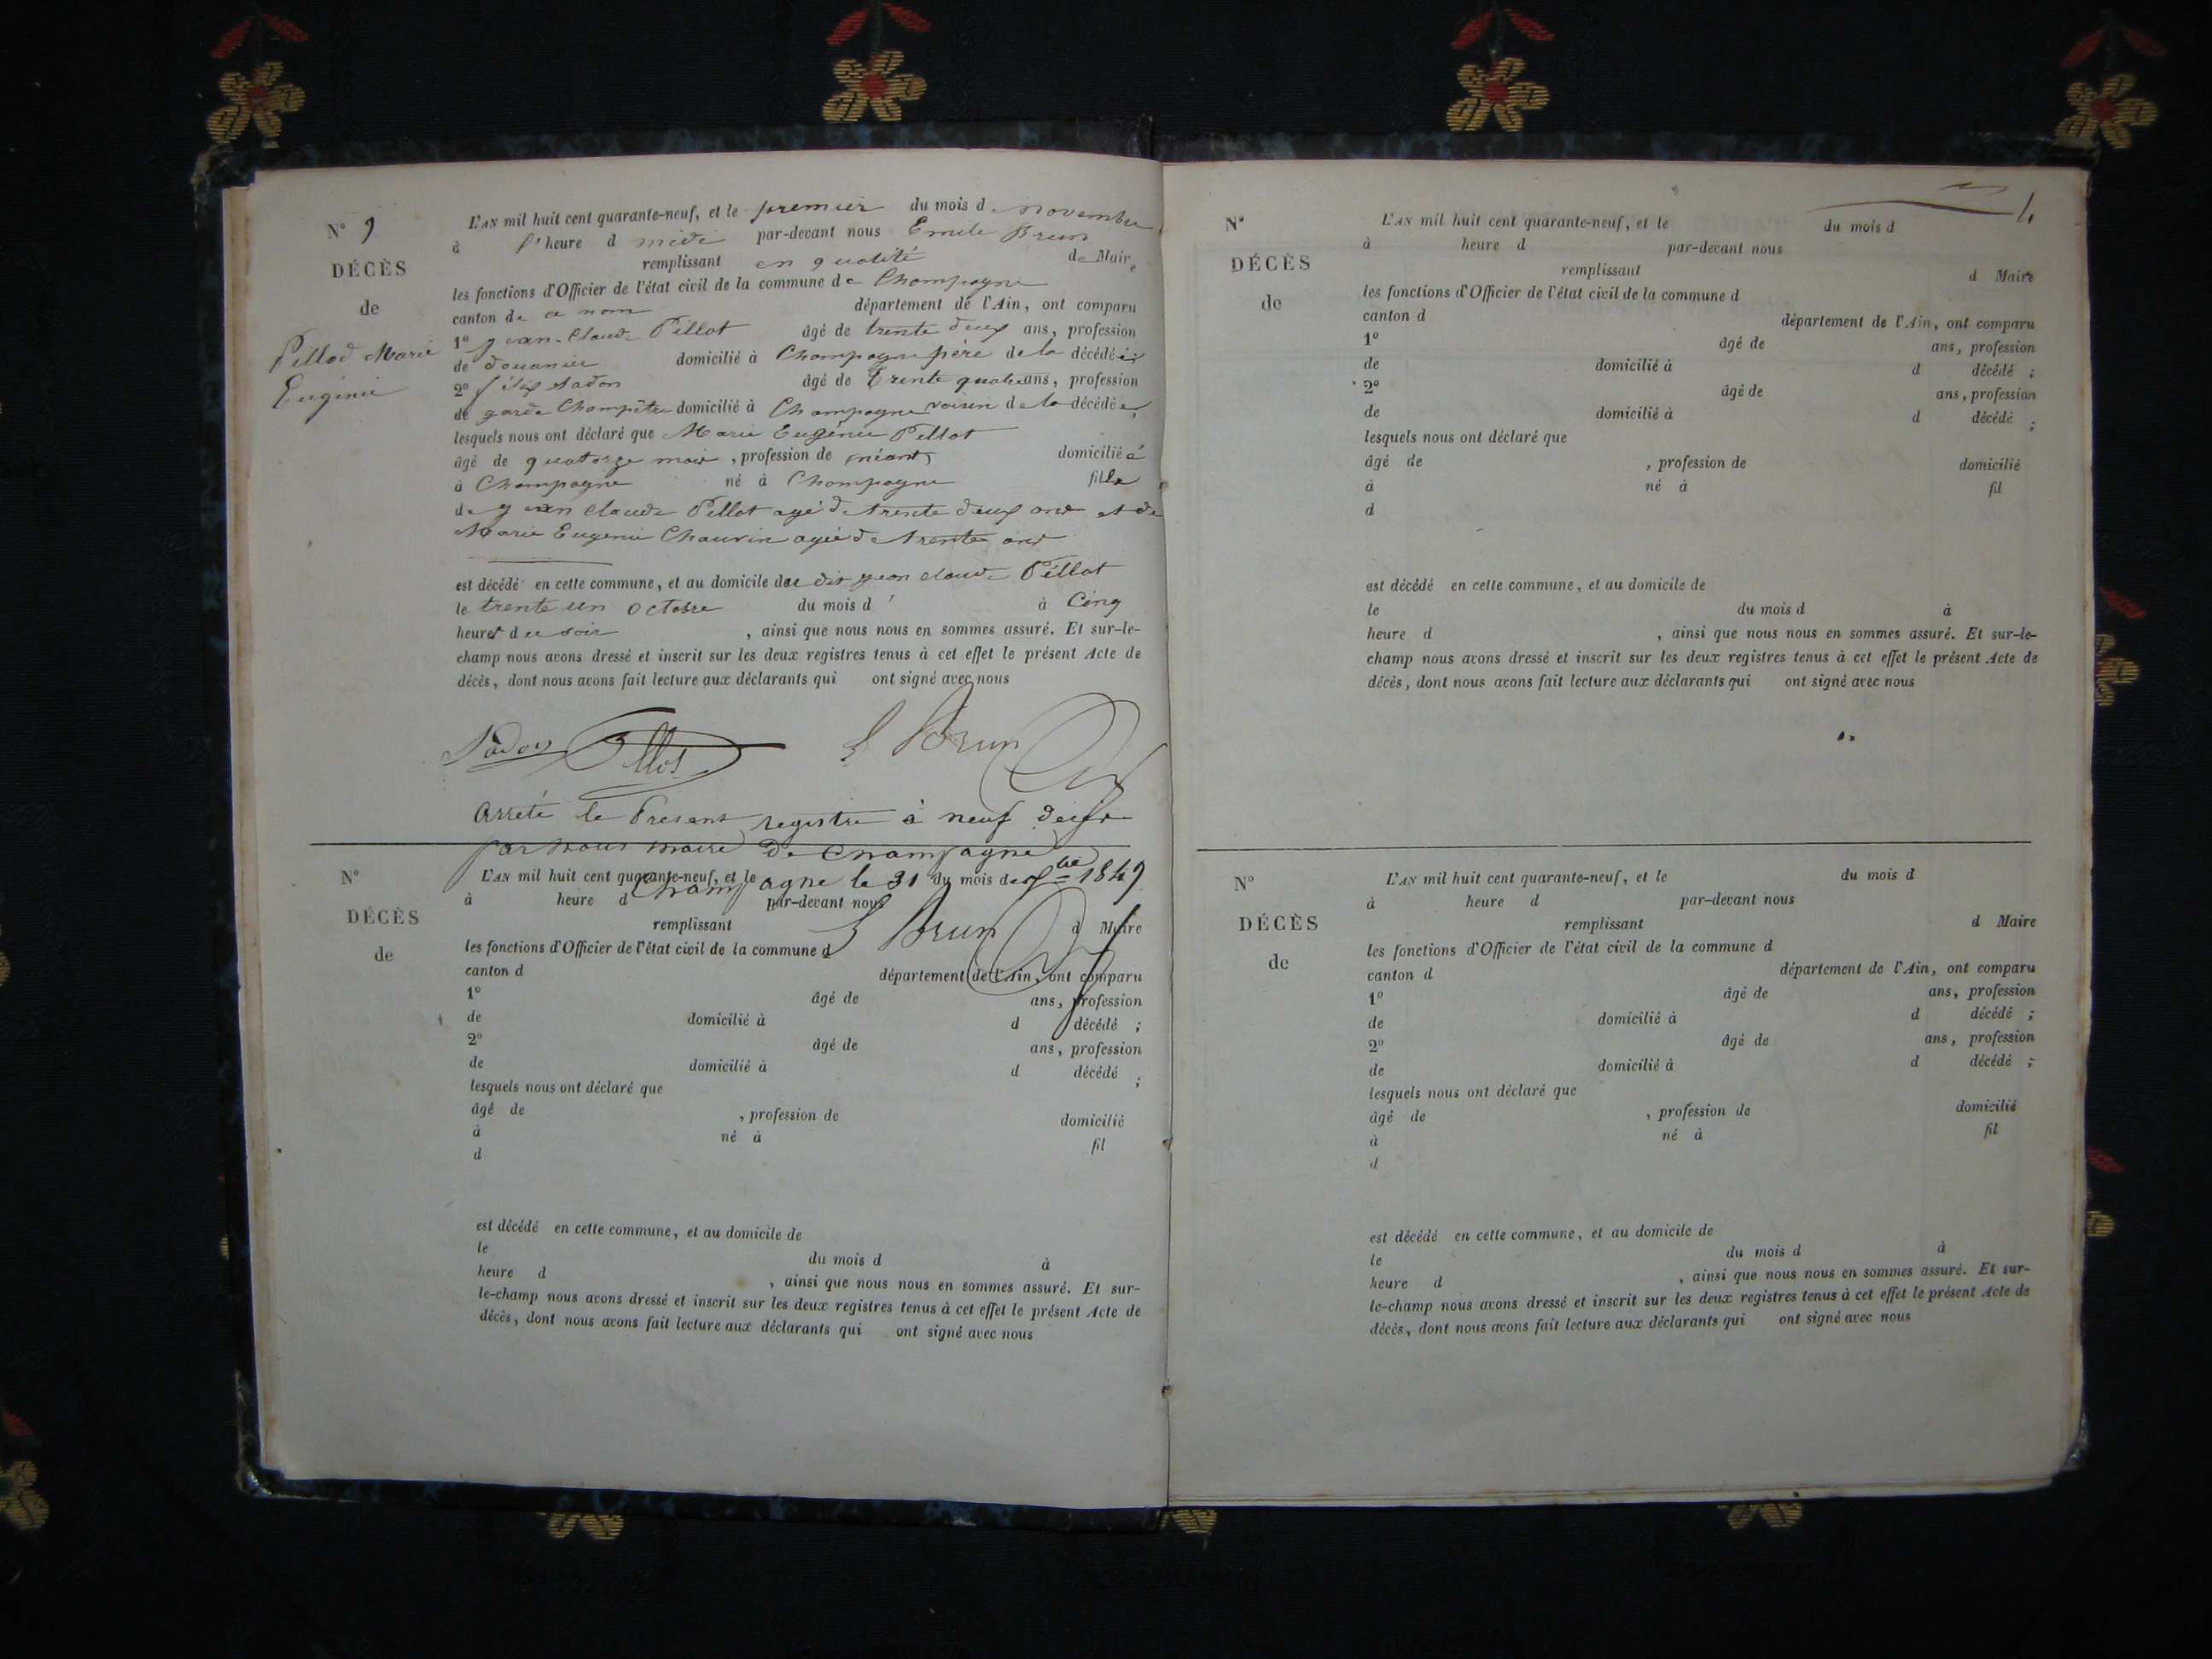 N° 9
DÉCÈS
de
Pillod Marie
Eugénie
L'AN mil huit cent quarante-neuf, et le premier du mois de novembre
à l'heure d midi par-devant nous Emile Brun
remplissant en qualité de Maire
les fonctions d'Officier de l'état civil de la commune de Champagne
canton de ce nom département de l'Ain, ont comparu
1° jean-Claude Pillot âgé de trente deux ans, profession
de douanier domicilié à Champagne père de la décédée;
2° félix Sadon âgé de trente quatre ans, profession
de garde Champêtre domicilié à Champagne voisin de la décédée;
lesquels nous ont déclaré que Marie Eugénie Pillot
âgé de quatorze mois, profession de néant domiciliée
à Champagne né à Champagne fille
de jean claude Pillot agé de trente deux ans et de
Marie Eugenie Chauvin agée de trente ans
est décédé en cette commune, et au domicile du dit jean claude Pillot
le trente un octobre du mois d à Cinq
heures du soir, ainsi que nous nous en sommes assuré. Et sur-le-
champ nous avons dressé et inscrit sur les deux registres tenus à cet effet le présent Acte de
décès, dont nous avons fait lecture aux déclarants qui ont signé avec nous
Sadon Pillot E Brun
Arreté le Present registre à neuf décès
par nous maire de Champagne
Champagne le 31 Xbre 1849
E Brun
N°
DÉCÈS
de
L'AN mil huit cent quarante-neuf, et le du mois d
à heure d par-devant nous
remplissant d Maire
les fonctions d'Officier de l'état civil de la commune d
canton d département de l'Ain, ont comparu
1° âgé de ans, profession
de domicilié à d décédé ;
2° âgé de ans, profession
de domicilié à d décédé ;
lesquels nous ont déclaré que
âgé de , profession de domicilié
à né à fil
d
est décédé en cette commune, et au domicile de
le du mois d à
heure d , ainsi que nous nous en sommes assuré. Et sur-
le-champ nous avons dressé et inscrit sur les deux registres tenus à cet effet le présent Acte de
décès, dont nous avons fait lecture aux déclarants qui ont signé avec nous
4
N°
DÉCÈS
de
L'AN mil huit cent quarante-neuf, et le du mois d
à heure d par-devant nous
remplissant d Maire
les fonctions d'Officier de l'état civil de la commune d
canton d département de l'Ain, ont comparu
1° âgé de ans, profession
de domicilié à d décédé ;
2° âgé de ans, profession
de domicilié à d décédé ;
lesquels nous ont déclaré que
âgé de , profession de domicilié
à né à fil
d
est décédé en cette commune, et au domicile de
le du mois d à
heure d , ainsi que nous nous en sommes assuré. Et sur-le-
champ nous avons dressé et inscrit sur les deux registres tenus à cet effet le présent Acte de
décès, dont nous avons fait lecture aux déclarants qui ont signé avec nous
N°
DÉCÈS
de
L'AN mil huit cent quarante-neuf, et le du mois d
à heure d par-devant nous
remplissant d Maire
les fonctions d'Officier de l'état civil de la commune d
canton d département de l'Ain, ont comparu
1° âgé de ans, profession
de domicilié à d décédé ;
2° âgé de ans, profession
de domicilié à d décédé ;
lesquels nous ont déclaré que
âgé de , profession de domicilié
à né à fil
d
est décédé en cette commune, et au domicile de
le du mois d à
heure d , ainsi que nous nous en sommes assuré. Et sur-
le-champ nous avons dressé et inscrit sur les deux registres tenus à cet effet le présent Acte de
décès, dont nous avons fait lecture aux déclarants qui ont signé avec nous